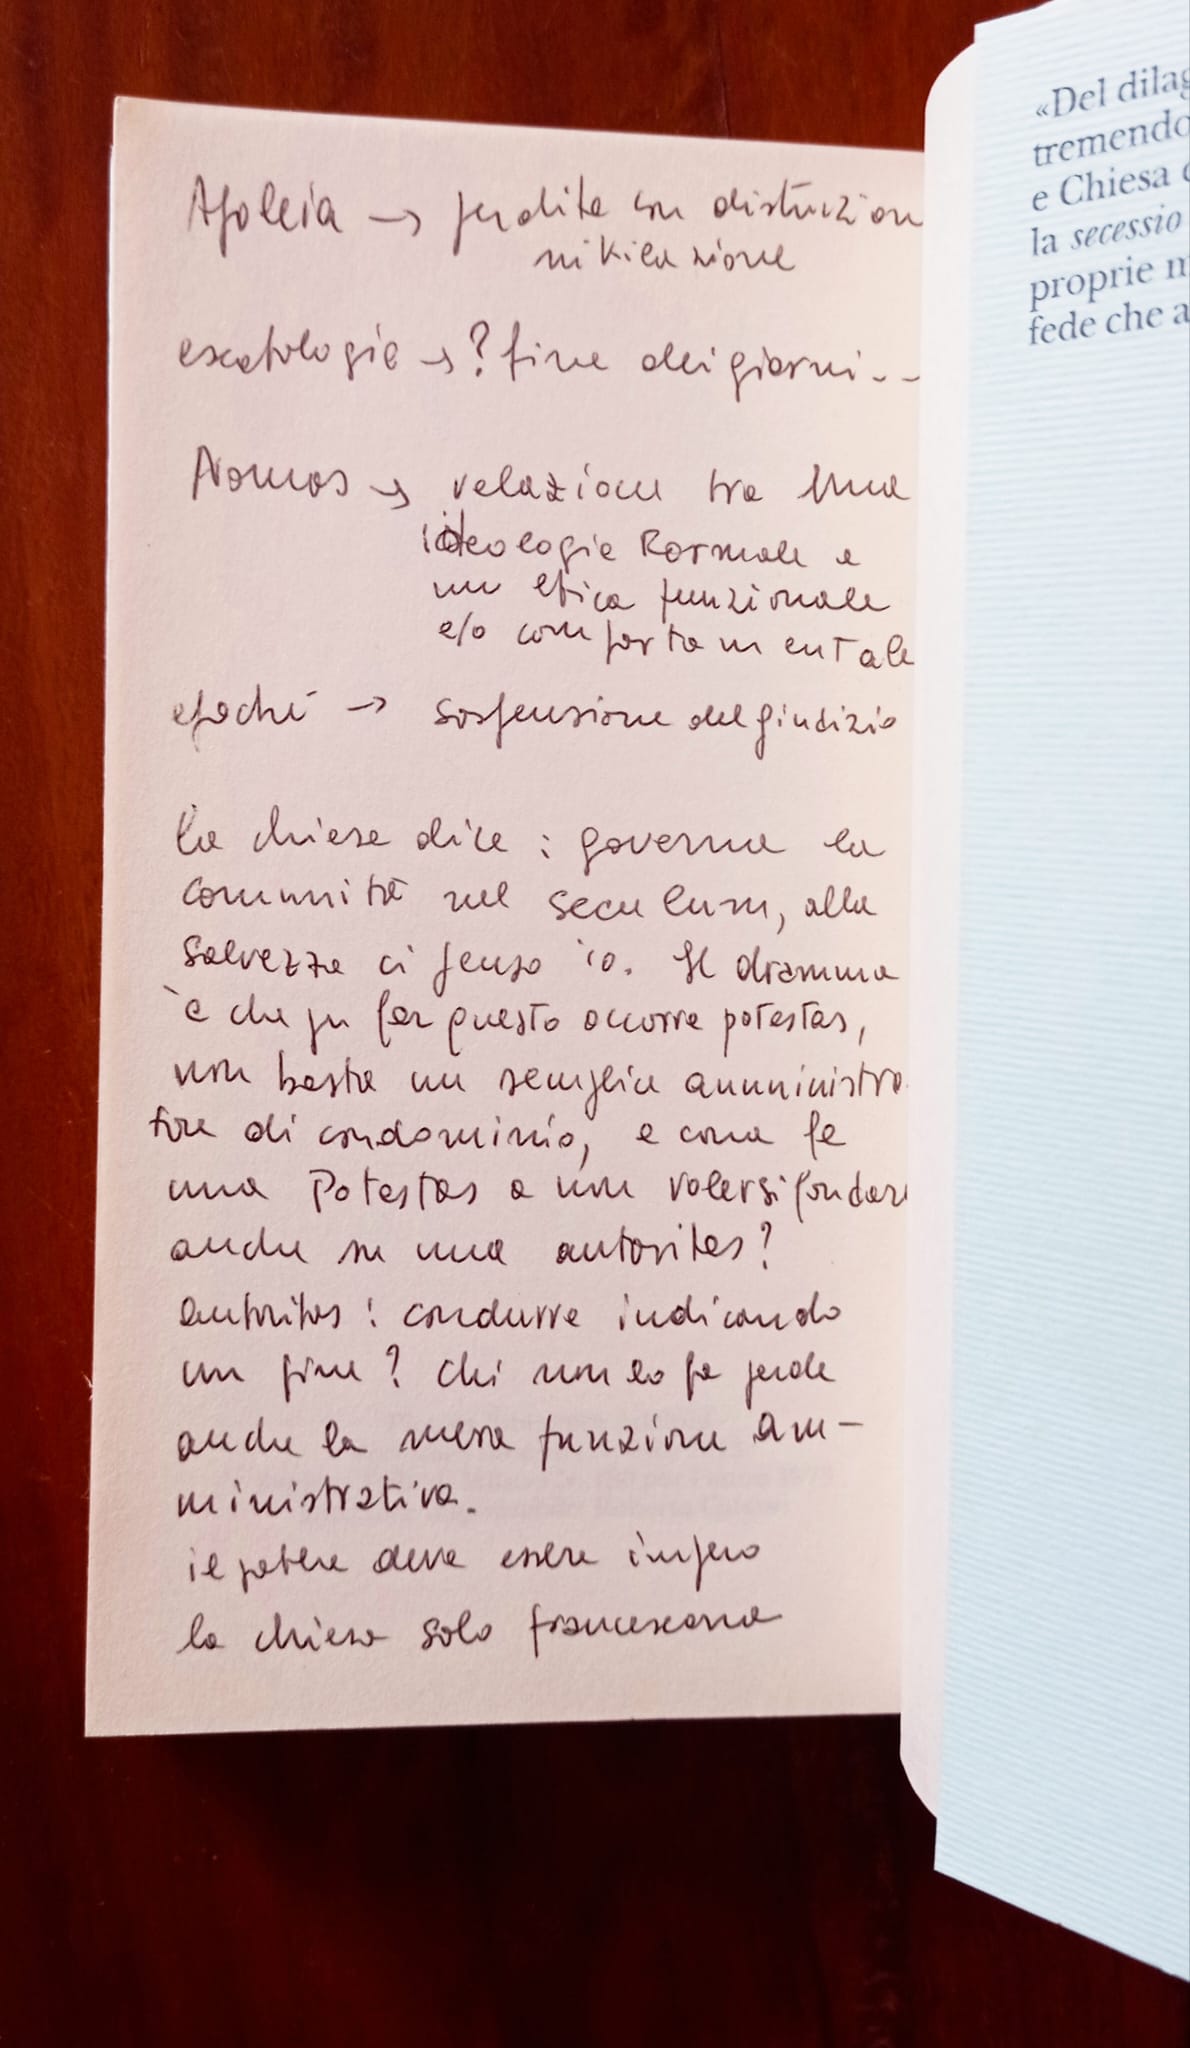 Apoleia → perdita con distruzion
nihilazione
escatologia → ? fine dei giorni...
Nomos → relazione tra una
ideologia formale e
un etica funzionale
e/o comportamentale
epochè → sospensione del giudizio
la chiesa dice : governa la
comunità nel seculum, alla
salvezza ci penso io. Il dramma
è che per questo occorre potestas,
non basta un semplice amministra
tore di condominio, e come fa
una Potestas a non volersi fondare
anche su una autoritas?
autoritas : condurre indicando
un fine? chi non lo fa perde
anche la mera funzione am-
ministrativa.
il potere deve essere impero
la chiesa solo francescana
«Del dilag
tremendo
e Chiesa
la secessio
proprie m
fede che a